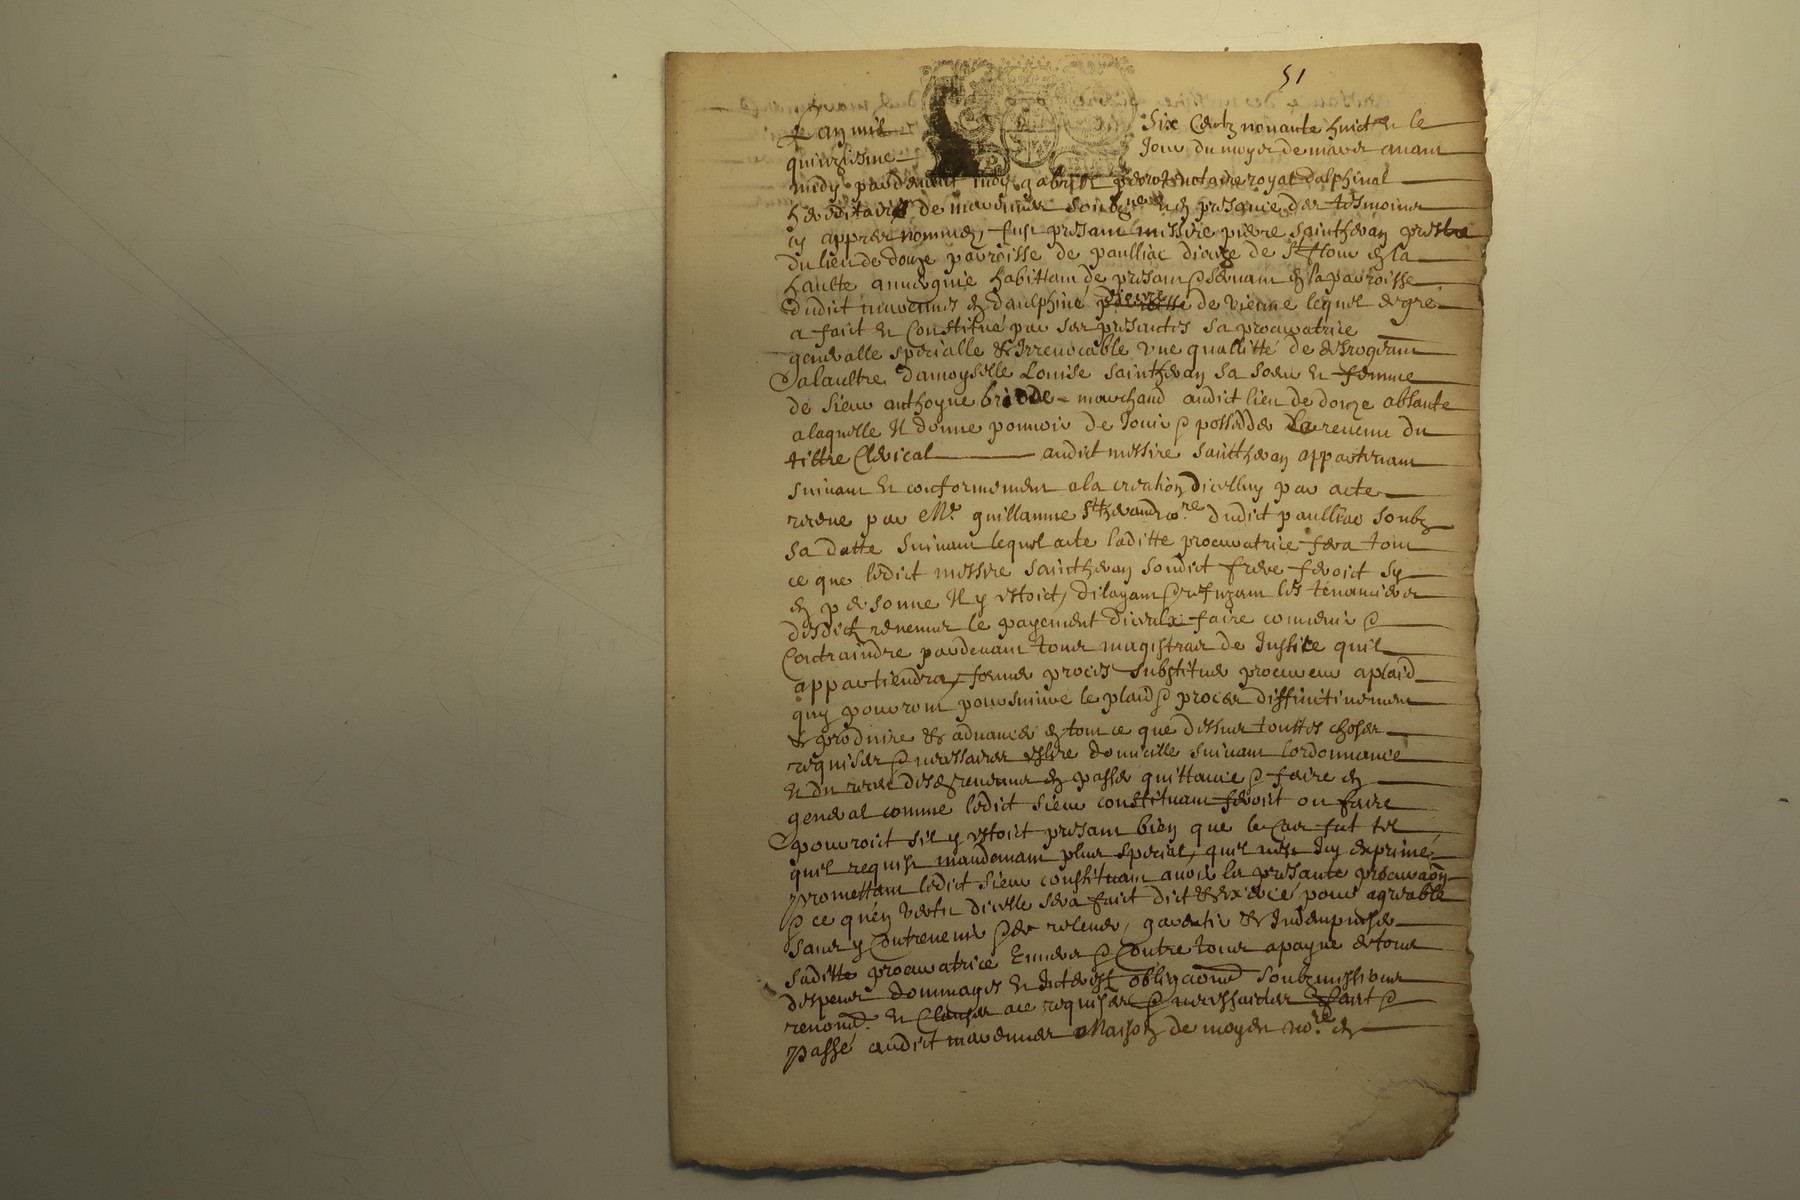 51
Lan mil Six Centz nonante huict et le
quinziesme Jour du moys de avant
midy pardevant moy gabriel notaire royal dalphinal
hereditaire de soubzsigné et en presance des tesmoins
cy appres nommez, fust presant messire pierre sainthevan prestre
du lieu de douze parroisse de paulliac dioceze de St flour en la
haulte auvergnie habittant de presant & servant en la parroisse
dudict en daulphiné dioceze de vienne lequel de gré
a faict et Constitué par ses presantes sa procuratrice
generalle specialle et Irrevocable une quallitté ne desrogeant
a laultre damoyselle Louise sainthevan sa soeur et femme
de sieur anthoyne briode marchand audict lieu de douze absante
a laquelle Il donne pouvoir de Jouir & posseder Le revenu du
tiltre Clerical audict messire sainthevan appartenant
suivant et conformement a la creation dicelluy par acte
receue par Me guillaume dudict paulliac soubz
sa datte suivant lequel acte laditte procuratrice fera tout
ce que ledict messire sainthevan sondict frere feroict sy
en personne Il y estoict, dilayant & refuzant les tenanciers
desdictz revenus le payement diceulx faire convenir &
Contraindre pardevant tous magistras de Justice quil
appartiendra, former proces substituer procureur a plaid
quy pourront poursuivre le plaid & proces diffinitivement
et produire et advancer en tout ce que dessus touttes choses
requises & necessaires eslire domicille suivant lordonnance
et du receu desdictz revenus en passer quittance & faire en
general comme ledict sieur constituant feroict ou faire
pouroict sil y estoict presant bien que le Cas fut tel
quil requist mandemant plus special, quil nest Icy exprimé
promettant ledict sieur constituant avoir la presante procuraon
& ce quen vertu dicelle sera faict dict et exercé pour agreable
sans y Contrevenir & de relever, garentir et Indempniser
saditte procuratrice Envers & Contre tous a payne de tous
despens dommages et Interestz obligaons soubzmissions
renonōns et Clauses ace requises & necessaires Faict &
Passé audict Maison de moydit nore en